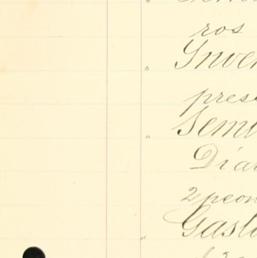 ros
Inven
pres
Semi
Diar
2 peon
Gasto